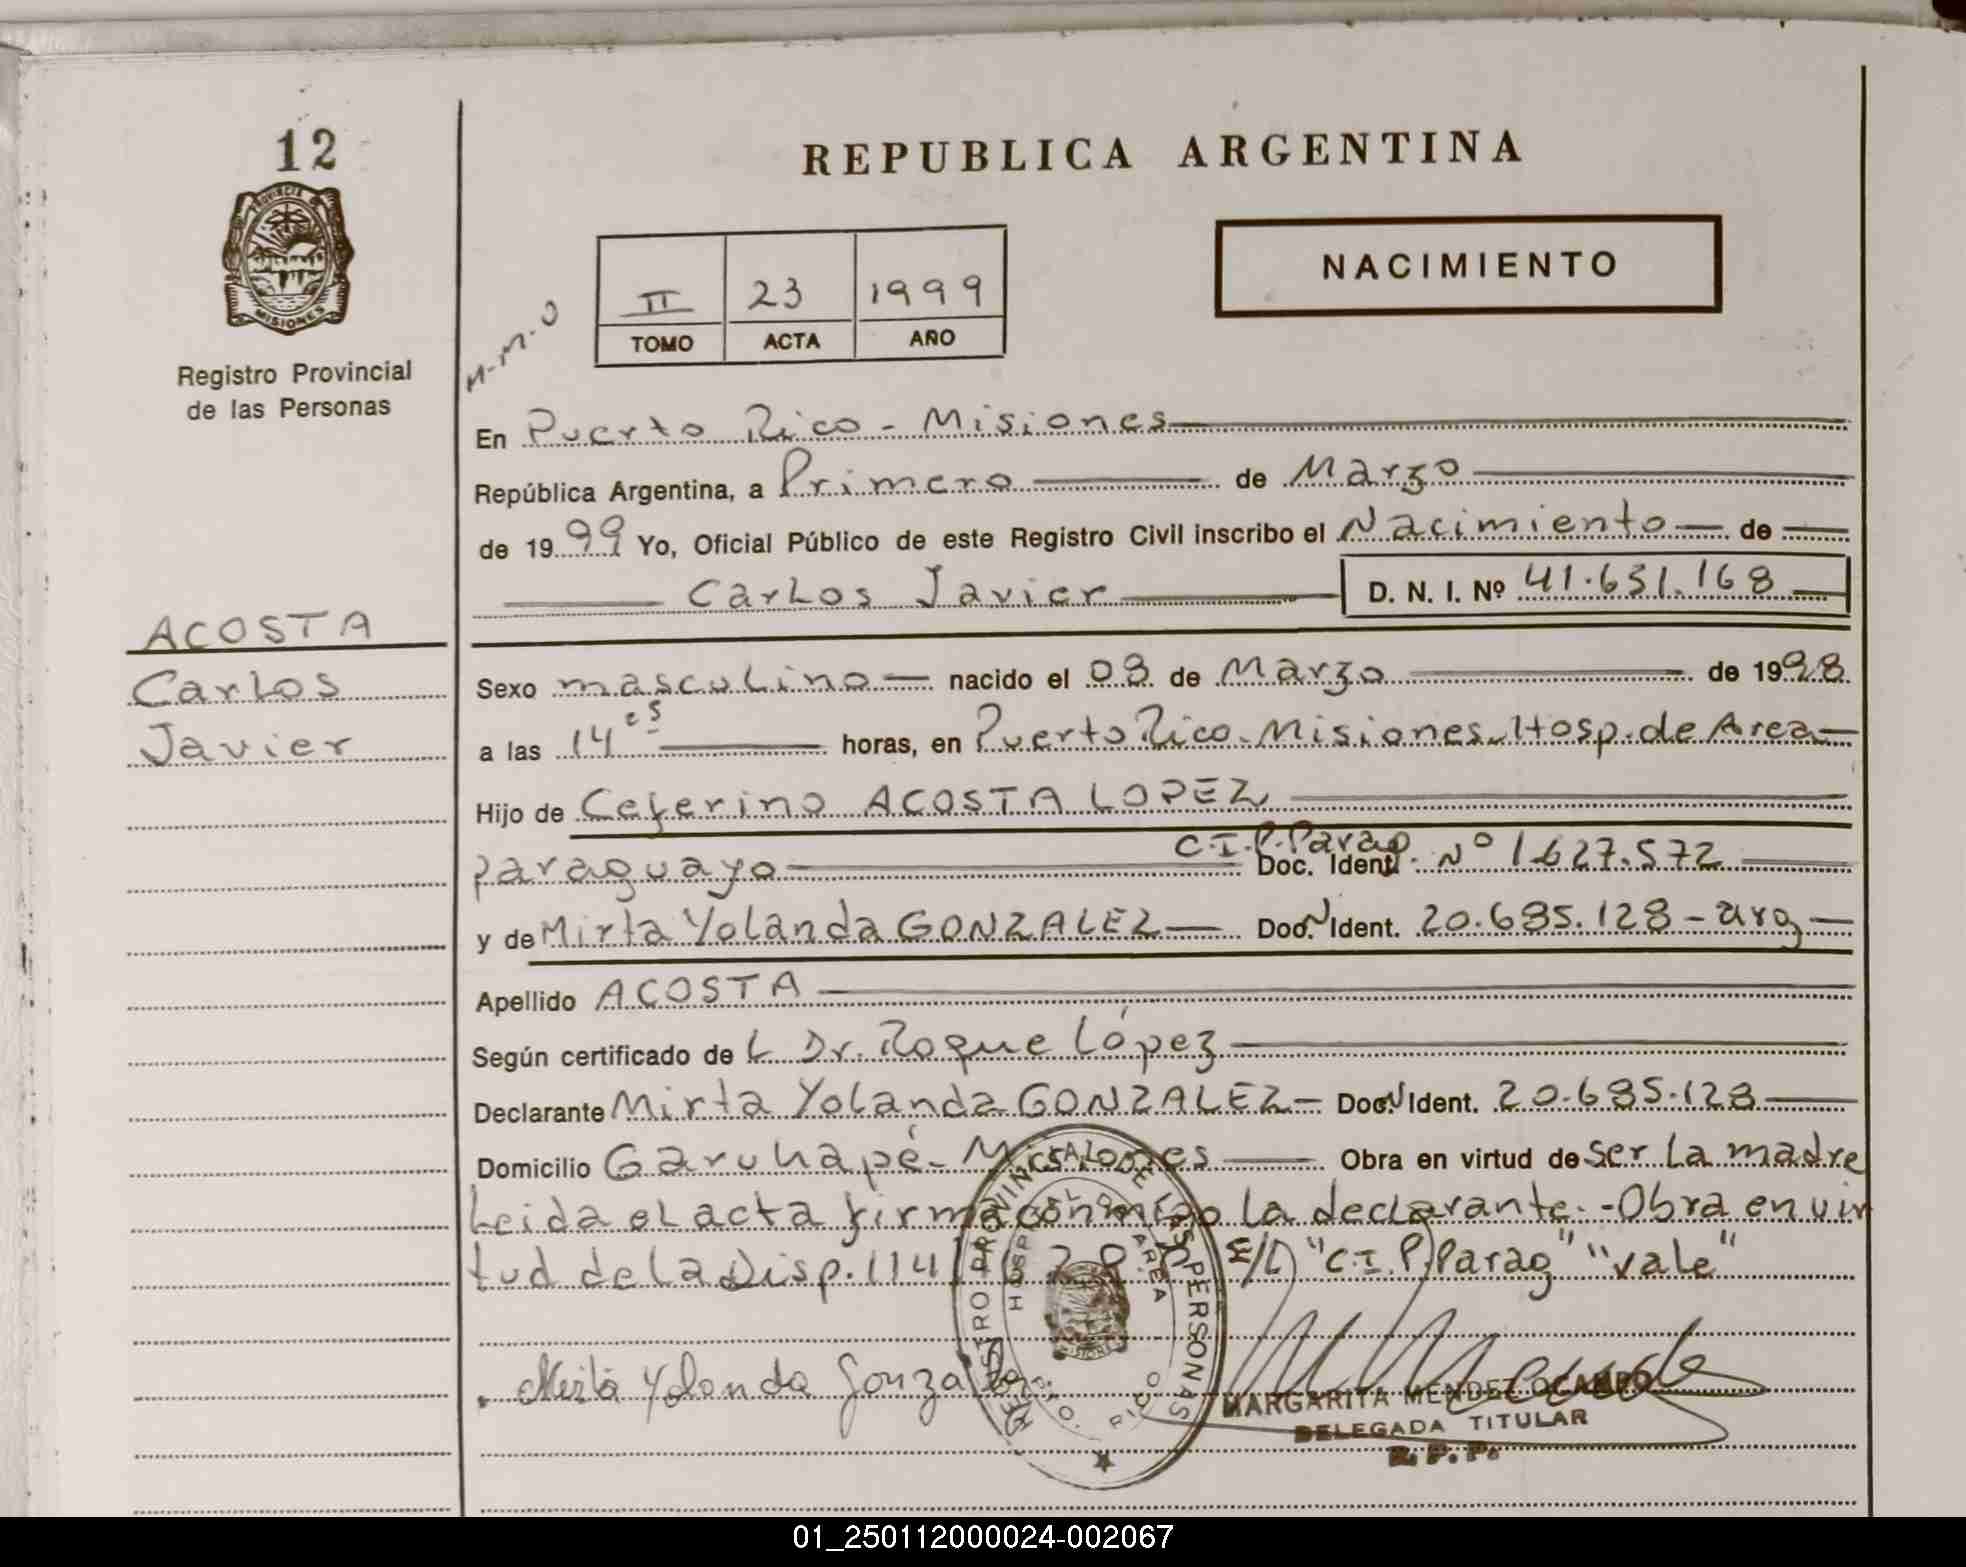 12
REPUBLICA ARGENTINA
PROVINCIA DE MISIONES
NACIMIENTO
II 23 1999
TOMO ACTA AÑO
M-M-O
Registro Provincial
de las Personas
En Puerto Rico - Misiones
República Argentina, a Primero de Marzo
de 1999 Yo, Oficial Público de este Registro Civil inscribo el Nacimiento de
Carlos Javier D. N. I. Nº 41.631.168
ACOSTA
Carlos
Javier
Sexo masculino nacido el 08 de Marzo de 1998
a las 14 es horas, en Puerto Rico - Misiones - Hosp. de Area
Hijo de Ceferino ACOSTA LOPEZ
paraguayo C.I.P. Parag Doc. Ident. Nº 1.627.572
y de Mirta Yolanda GONZALEZ Doc. N Ident. 20.685.128 - arg
Apellido ACOSTA
Según certificado de L Dr. Roque López
Declarante Mirta Yolanda GONZALEZ - Doc. N Ident. 20.685.128
Domicilio Garuhapé - Misiones Obra en virtud de ser la madre
Leida el acta firma conmigo la declarante. - Obra en vir
tud de la Disp. 114 E/L "C.I.P. Parag" "vale"
REGISTRO PROVINCIAL DE LAS PERSONAS
HOSPITAL DE AREA
Mirta Yolanda Gonzalez
MARGARITA MENDEZ OCAMPO
DELEGADA TITULAR
R. P. P.
01_250112000024-002067